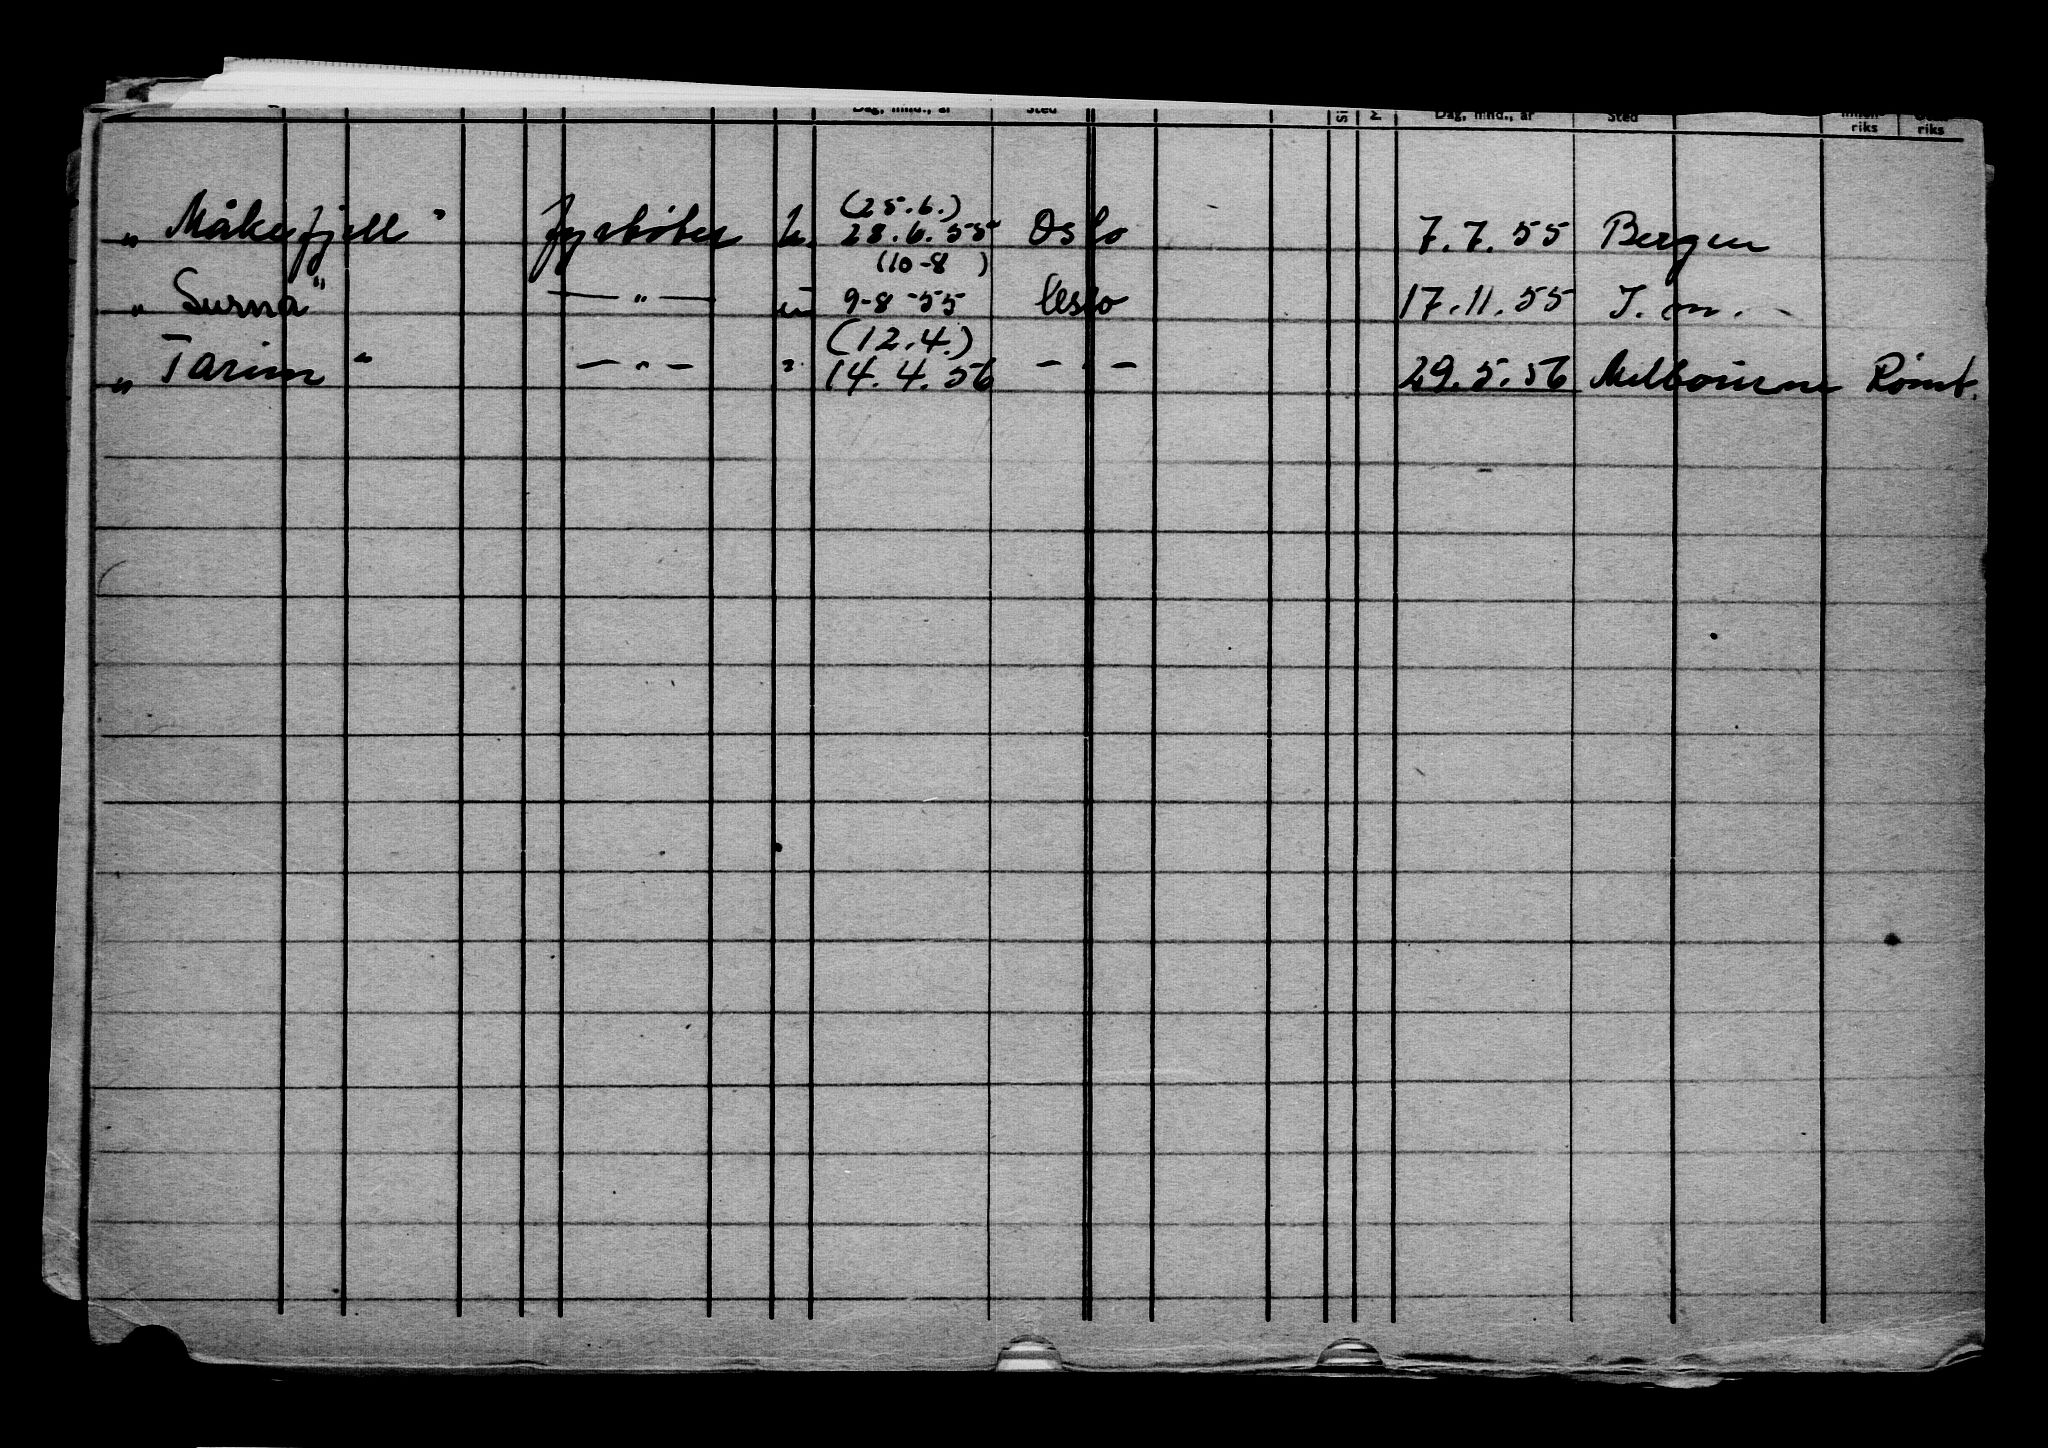 Dag, mnd., år Sted Dag, mnd., år Sted riks riks
(25.6.)
„Måkefjell" fyrbøter u. 28.6.55 Oslo 7.7.55 Bergen
(10-8 )
„Surna" — " — u 9-8-55 Oslo 17.11.55 T. m.
(12.4.)
„Tarim" — " — " 14.4.56 — " — 29.5.56 Melbourne Rømt.